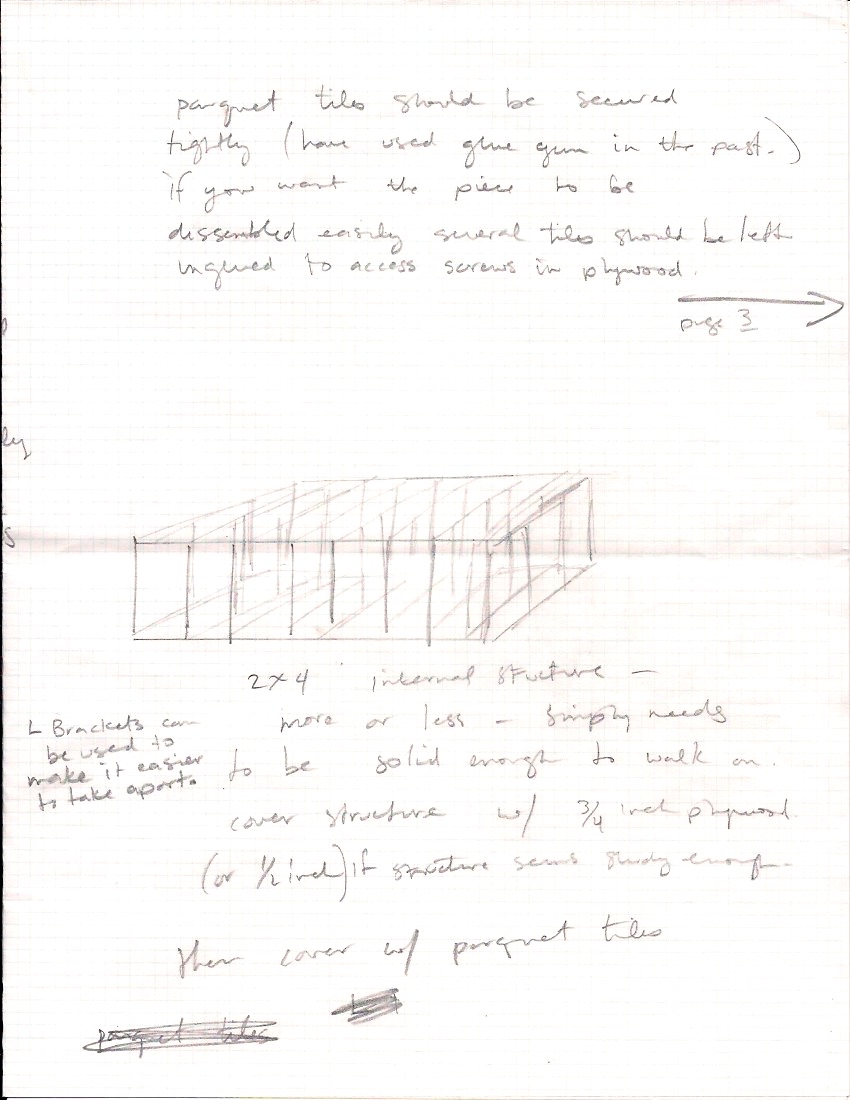 parquet tiles should be secured
tightly (have used glue gun in the past.)
if you want the piece to be
dissembled easily several tiles should be left
unglued to access screws in plywood.
page 3
ly
s
2x4 internal structure –
more or less – simply needs
to be solid enough to walk on.
cover structure w/ 3/4 inch plywood.
(or 1/2 inch) if structure seems study enough.
then cover w/ parquet tiles
parquet tiles
L Brackets can
be used to
make it easier
to take apart.